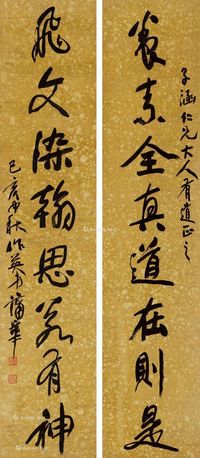 子涵仁兄大人有道正之
养素全真道在則是
飛文染翰思若有神
己亥中秋作英弟蒲華